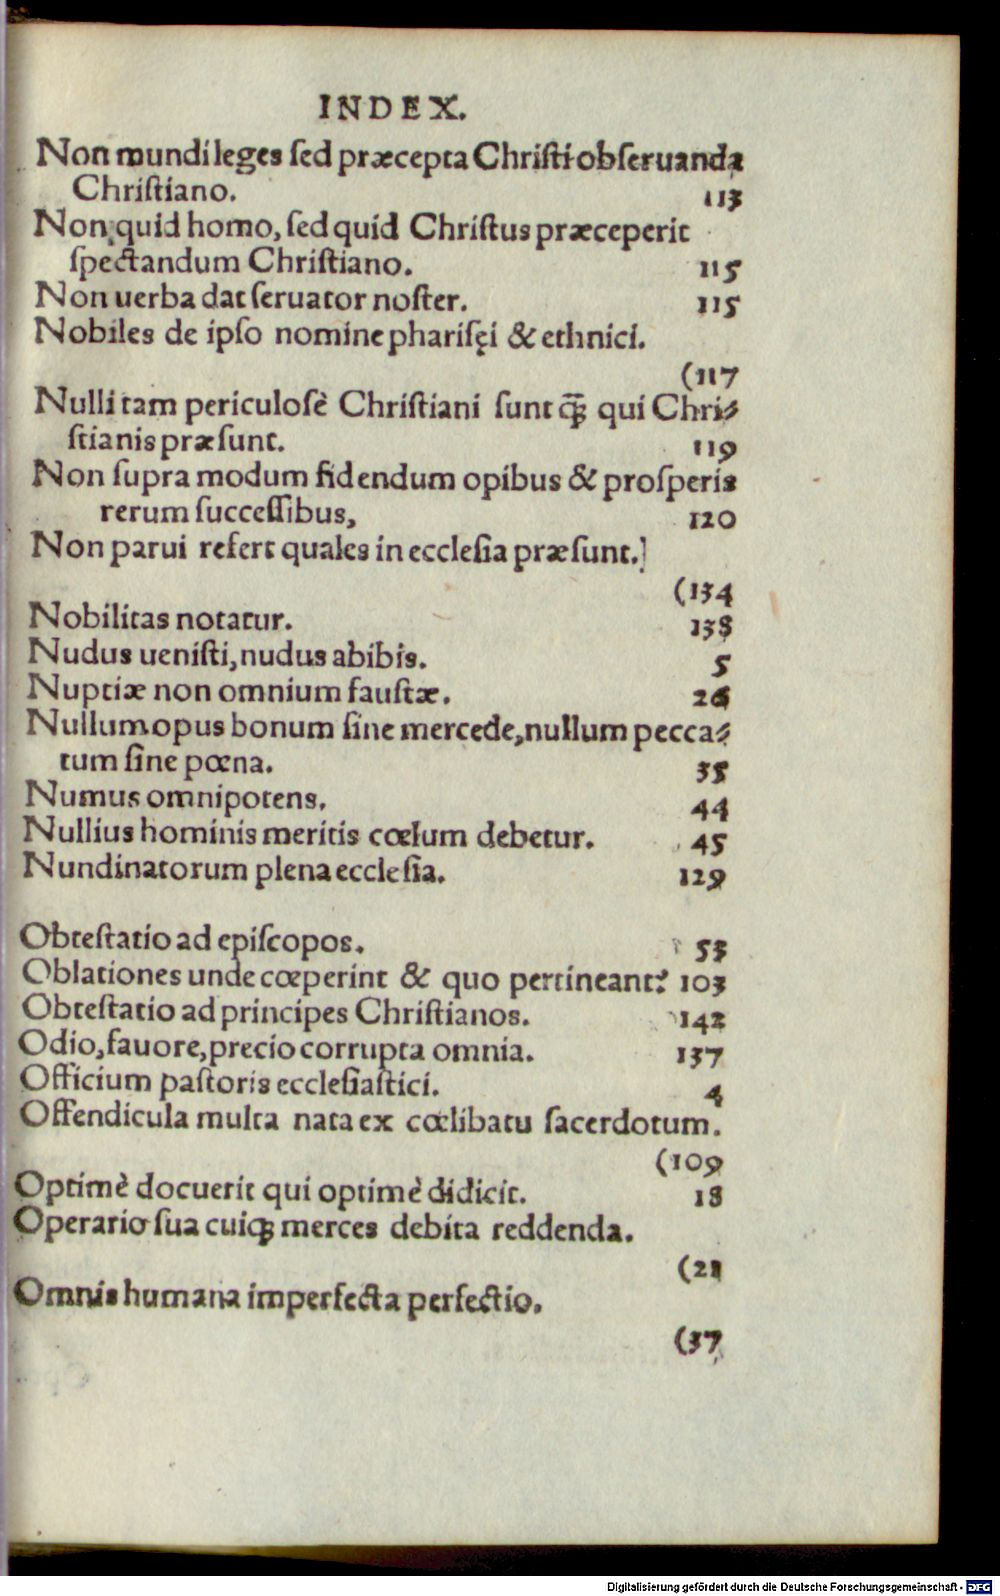 INDEX.
Non mundi leges sed præcepta Christi obseruanda
Christiano. 113
Non quid homo, sed quid Christus præceperit
spectandum Christiano. 115
Non uerba dat seruator noster. 115
Nobiles de ipso nomine pharisęi & ethnici.
(117
Nulli tam periculosè Christiani sunt q̃ꝫ qui Chri⸗
stianis præsunt. 119
Non supra modum fidendum opibus & prosperis
rerum successibus, 120
Non parui refert quales in ecclesia præsunt.
(134
Nobilitas notatur. 138
Nudus uenisti, nudus abibis. 5
Nuptiæ non omnium faustæ. 26
Nullum opus bonum sine mercede, nullum pecca⸗
tum sine pœna. 35
Numus omnipotens. 44
Nullius hominis meritis cœlum debetur. 45
Nundinatorum plena ecclesia. 129
Obtestatio ad episcopos. 53
Oblationes unde cœperint & quo pertineant? 103
Obtestatio ad principes Christianos. 142
Odio, fauore, precio corrupta omnia. 137
Officium pastoris ecclesiastici. 4
Offendicula multa nata ex cœlibatu sacerdotum.
(109
Optimè docuerit qui optimè didicit. 18
Operario sua cuiqꝫ merces debita reddenda.
(21
Omnis humana imperfecta perfectio.
(37
Digitalisierung gefördert durch die Deutsche Forschungsgemeinschaft - DFG